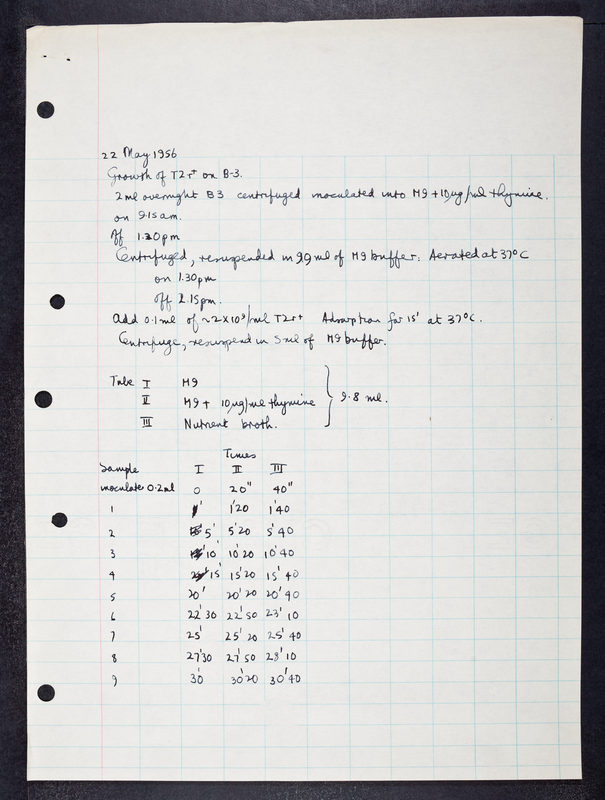 22 May 1956
Growth of T2r+ on B-3.
2 ml overnight B3 centrifuged inoculated into M9 + 10µg/ml thymine.
on 9.15am.
off 1.20pm
Centrifuged, resuspended in 9.9 ml of M9 buffer. Aerated at 37°C
on 1.30pm
off 2.15pm.
Add 0.1ml of ~2×10⁹/ml T2r+ Adsorption for 15' at 37°C.
Centrifuge, resuspend in 5 ml of M9 buffer.
Tube I M9
II M9 + 10µg/ml thymine } 9.8 ml.
III Nutrient broth.
Times
Sample I II III
inoculate 0.2ml 0 20" 40"
1 1' 1'20 1'40
2 5' 5'20 5'40
3 10' 10'20 10'40
4 15' 15'20 15'40
5 20' 20'20 20'40
6 22'30 22'50 23'10
7 25' 25'20 25'40
8 27'30 27'50 28'10
9 30' 30'20 30'40